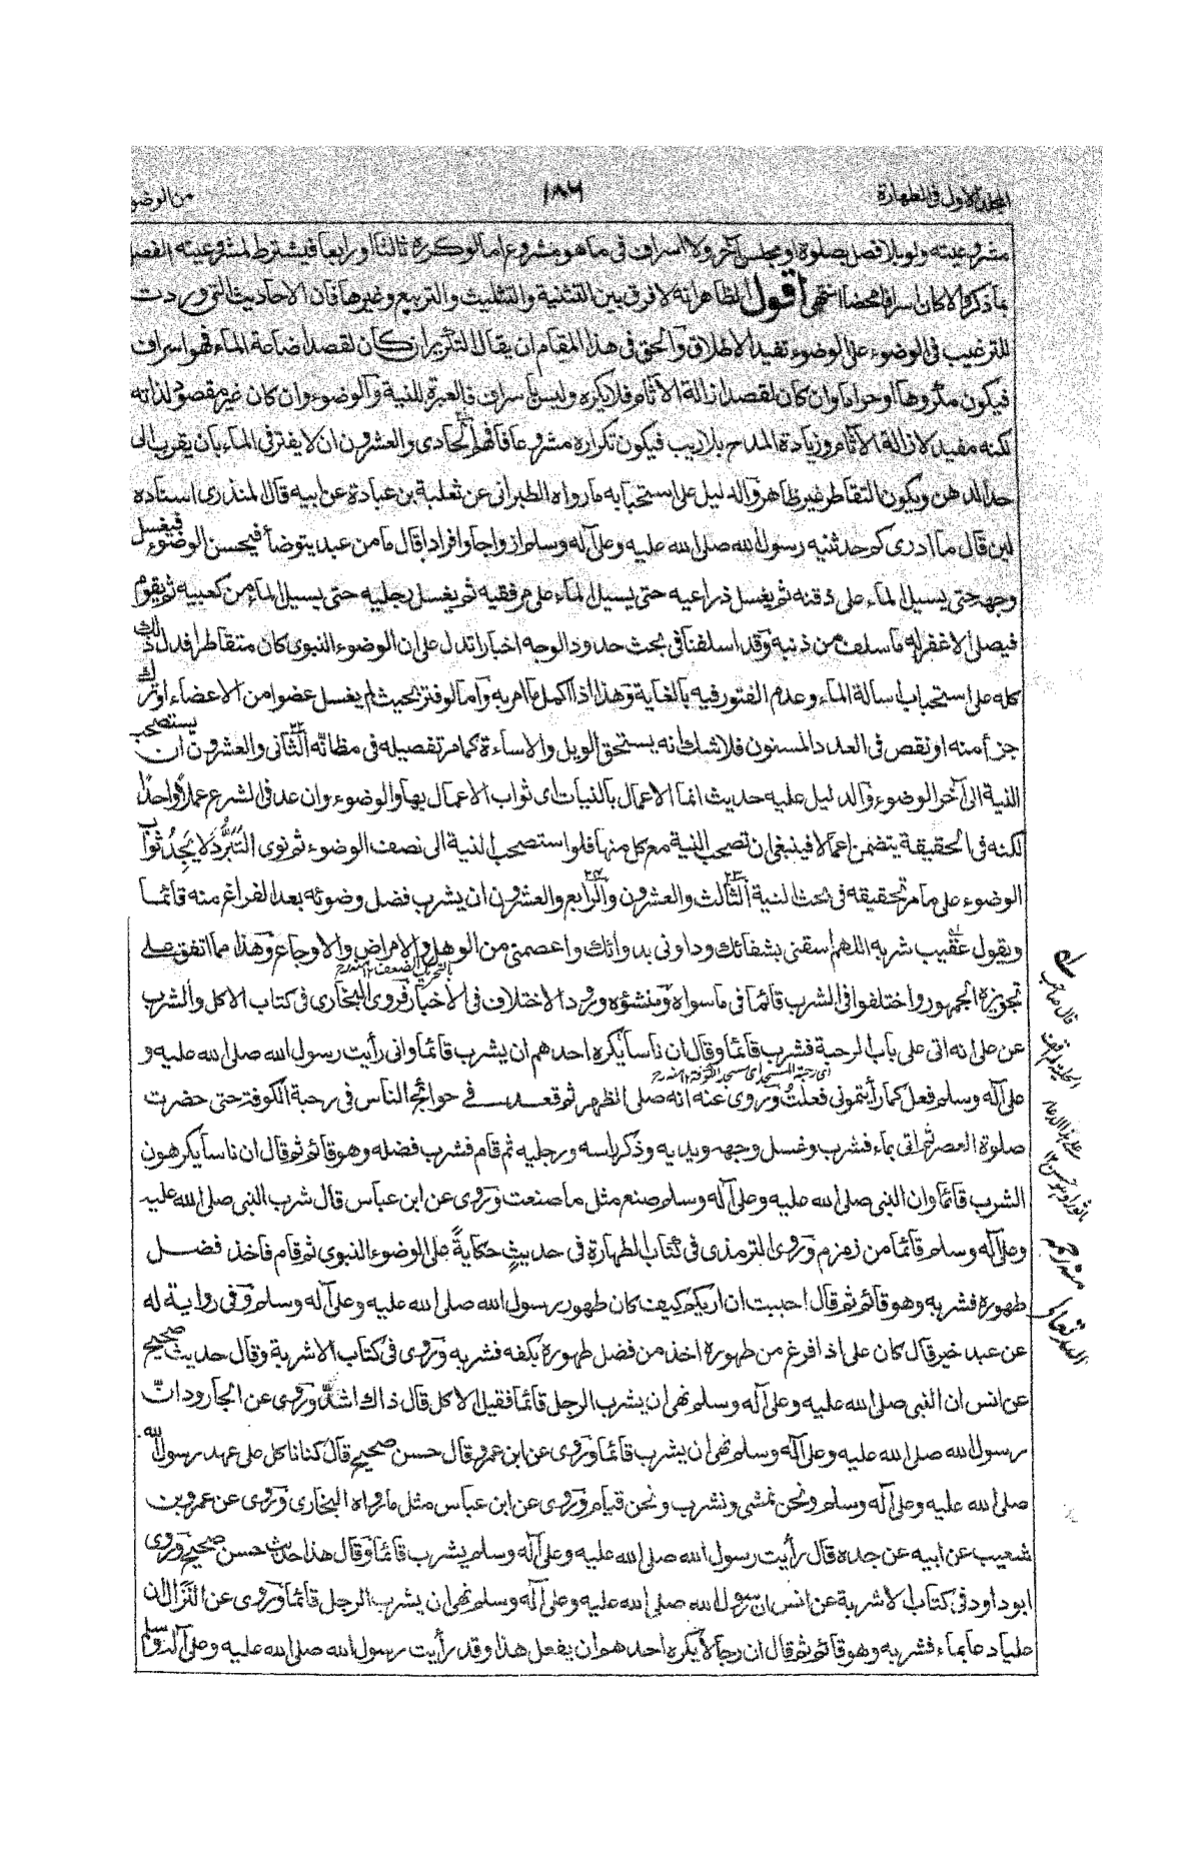 المجلد الاول فى الطهارة ١٨٦ من الوضوء
مشروعيته ولو بلا فصل بصلوة او مجلس آخر ولا اسراف فى ما هو مشروع اما لو كرره ثالثا او رابعا فيشترط لمشروعيته الفصل
بما ذكر والا كان اسرافا محضا انتهى اقول الظاهر انه لا فرق بين التثنية والتثليث والتربيع وغيرها فان الاحاديث التى وردت
للترغيب فى الوضوء على الوضوء تفيد الاطلاق والحق فى هذا المقام ان يقال التكرير ان كان لقصد اضاعة الماء فهو اسراف
فيكون مكروها او حراما وان كان لقصد ازالة الآثام فلا يكره وليس باسراف فالعبرة للنية والوضوء وان كان غير مقصود لذاته
لكنه مفيد لازالة الآثام وزيادة المدح بلا ريب فيكون تكراره مشروعا فافهم الحادى والعشرون ان لا يفتر فى الماء بان يقرب الى
حد الدهن ويكون التقاطر غير ظاهر والدليل على استحبابه ما رواه الطبرانى عن ثعلبة بن عبادة عن ابيه قال المنذرى اسناده
لين قال ما ادرى كم حدثنيه رسول الله صلى الله عليه وعلى آله وسلم ازواجا وافرادا قال ما من عبد يتوضأ فيحسن الوضوء فيغسل
وجهه حتى يسيل الماء على ذقنه ثم يغسل ذراعيه حتى يسيل الماء على مرفقيه ثم يغسل رجليه حتى يسيل الماء من كعبيه ثم يقوم
فيصلى الا غفر له ما سلف من ذنبه وقد اسلفنا فى بحث حدود الوجه اخبارا تدل على ان الوضوء النبوى كان متقاطرا فدل ذلك
كله على استحباب اسالة الماء وعدم الفتور فيه بالغاية وهذا اذا اكمل ما امر به واما لو فتر بحيث لم يغسل عضوا من الاعضاء او ترك
جزأ منه او نقص فى العدد المسنون فلا شك انه يستحق الويل والاساءة كما مر تفصيله فى مظانه الثانى والعشرون ان يستصحب
النية الى آخر الوضوء والدليل عليه حديث انما الاعمال بالنيات اى ثواب الاعمال بها والوضوء وان عد فى الشرع عملا واحدا
لكنه فى الحقيقة يتضمن اعمالا فينبغى ان تصحب النية مع كل منها فلو استصحب النية الى نصف الوضوء ثم نوى التبرد لا يجد ثواب
الوضوء على ما مر تحقيقه فى بحث النية الثالث والعشرون والرابع والعشرون ان يشرب فضل وضوئه بعد الفراغ منه قائما
ويقول عقيب شربه اللهم اسقنى بشفائك وداونى بدوائك واعصمنى من الوهل والامراض والاوجاع وهذا مما اتفق على
بالتحريك الضعف ١٢ منه رح
تجويزه الجمهور واختلفوا فى الشرب قائما فى ما سواه ومنشؤه ورود الاختلاف فى الاخبار فروى البخارى فى كتاب الاكل والشرب
عن على انه اتى على باب الرحبة فشرب قائما وقال ان ناسا يكره احدهم ان يشرب قائما وانى رأيت رسول الله صلى الله عليه و
اى رحبة المسجد اى مسجد الكوفة ١٢ منه رح
على آله وسلم فعل كما رأيتمونى فعلت وروى عنه انه صلى الظهر ثم قعد فى حوائج الناس فى رحبة الكوفة حتى حضرت
صلوة العصر ثم اتى بماء فشرب وغسل وجهه ويديه وذكر راسه ورجليه ثم قام فشرب فضله وهو قائم ثم قال ان ناسا يكرهون
الشرب قائما وان النبى صلى الله عليه وعلى آله وسلم صنع مثل ما صنعت وروى عن ابن عباس قال شرب النبى صلى الله عليه
وعلى آله وسلم قائما من زمزم وروى الترمذى فى كتاب الطهارة فى حديث حكاية على الوضوء النبوى ثم قام فاخذ فضل
طهوره فشربه وهو قائم ثم قال احببت ان اريكم كيف كان طهور رسول الله صلى الله عليه وعلى آله وسلم وفى رواية له
عن عبد خير قال كان على اذا فرغ من طهوره اخذ من فضل طهوره بكفه فشربه وروى فى كتاب الاشربة وقال حديث صحيح
عن انس ان النبى صلى الله عليه وعلى آله وسلم نهى ان يشرب الرجل قائما فقيل الاكل قال ذاك اشد وروى عن الجارود ان
رسول الله صلى الله عليه وعلى آله وسلم نهى ان يشرب قائما وروى عن ابن عمر وقال حسن صحيح قال كنا ناكل على عهد رسول الله
صلى الله عليه وعلى آله وسلم ونحن نمشى ونشرب ونحن قيام وروى عن ابن عباس مثل ما رواه البخارى وروى عن عمرو بن
شعيب عن ابيه عن جده قال رأيت رسول الله صلى الله عليه وعلى آله وسلم يشرب قائما وقال هذا حديث حسن صحيح وروى
ابو داود فى كتاب الاشربة عن انس ان رسول الله صلى الله عليه وعلى آله وسلم نهى ان يشرب الرجل قائما وروى عن النزال ان
عليا دعا بماء فشربه وهو قائم ثم قال ان رجالا يكره احدهم ان يفعل هذا وقد رأيت رسول الله صلى الله عليه وعلى آله وسلم